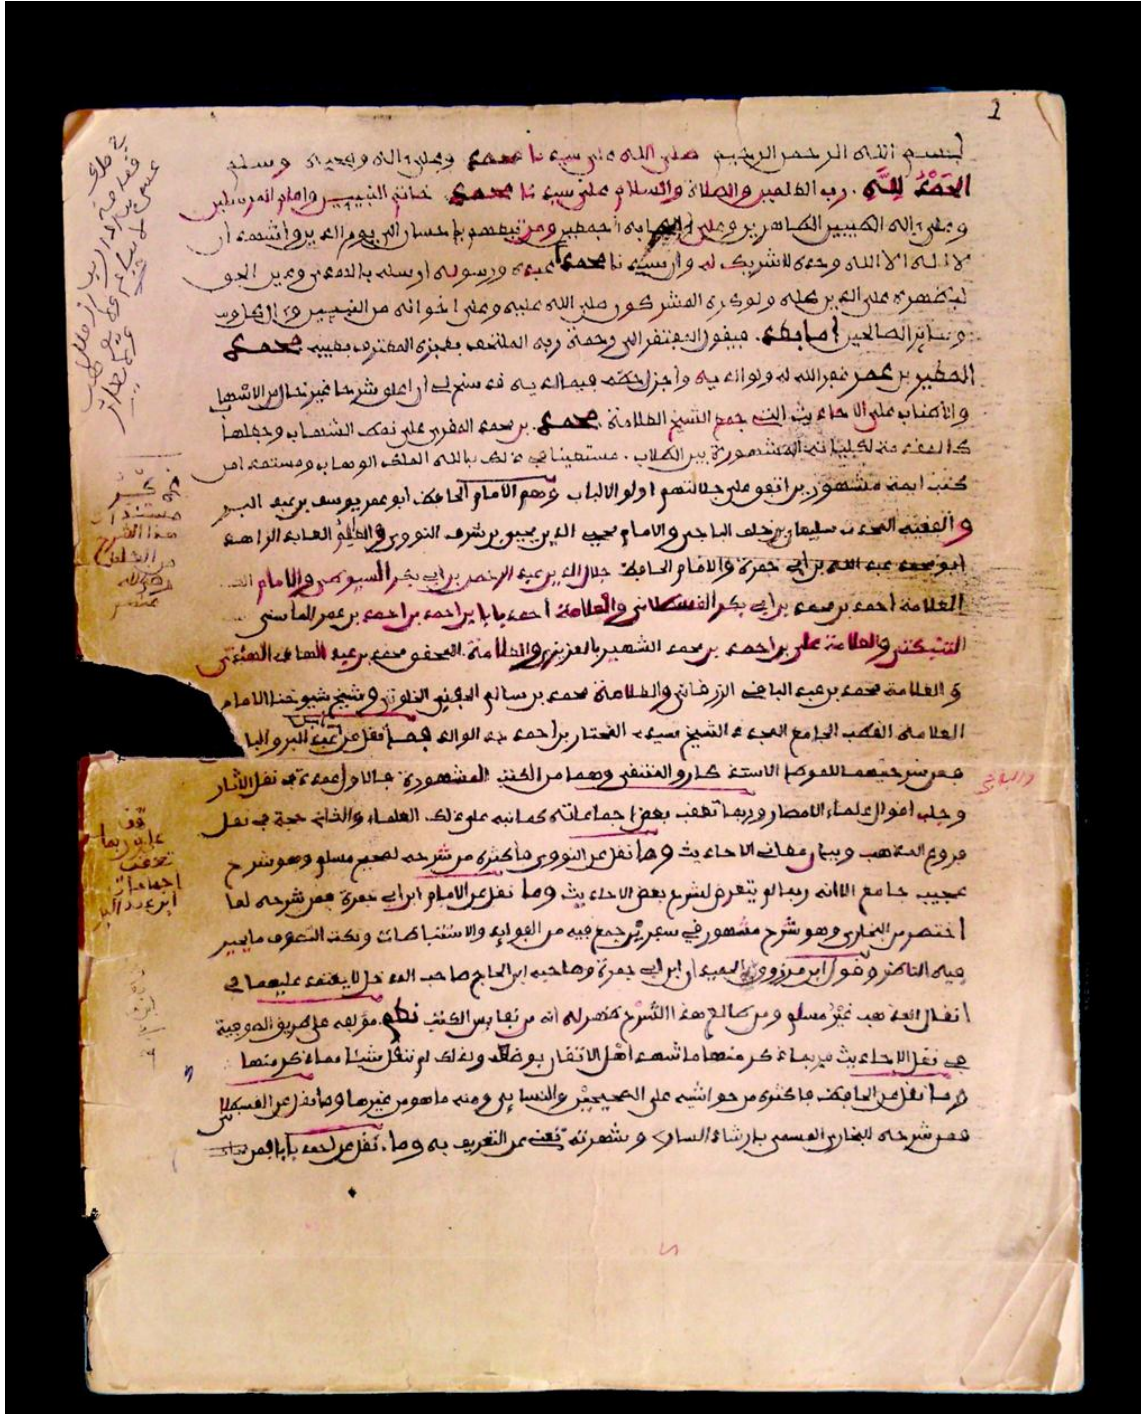 1
بسم الله الرحمن الرحيم صلى الله على سيدنا محمد وعلى ءاله وصحبه وسلم
الحَمْدُ لِلَّهِ رب العلمين والصلاة والسلام على سيدنا محمد خاتم النبيين وإمام المرسلين
وعلى ءاله الطيبين الطاهرين وعلى أصحابه أجمعين ومن تبعهم بإحسان الى يوم الدين وأشهد أن
لا اله الا الله وحده لا شريك له وأن سيدنا محمدا عبده ورسوله أرسله بالهدى ودين الحق
ليظهره على الدين كله ولو كره المشركون صلى الله عليه وعلى اخوانه من النبيين وءال كل
وسائر الصالحين أما بعد فيقول المفتقر الى رحمة ربه الملتحف بعجزه المعترف بعيبه محمد
الصغير بن عمر غفر الله له ولوالديه وأجزل حظه فيما لديه قد سنح لي أن أعلق شرحا غير خال من الاسهاب
والاطناب على الاحاديث التي جمع الشيخ العلامة محمد بن محمد المقرى على نمط الشهاب وجعلها
كالمقدمة لكلياته المشهورة بين الطلاب مستعينا في ذلك بالله الملك الوهاب ومستمدا من
كتب ايمة مشهورين اتفق على جلالتهم اولو الالباب وهم الامام الحافظ ابو عمر يوسف بن عبد البر
والفقيه المحدث سليمان بن خلف الباجي والامام محيي الدين يحيى بن شرف النووي والعالم العابد الزاهد
أبو محمد عبد الله بن أبي جمرة والامام الحافظ جلال الدين عبد الرحمن بن أبي بكر السيوطي والامام
العلامة أحمد بن محمد بن أبي بكر القسطلاني والعلامة أحمد بابا بن احمد بن احمد بن عمر الماسني
التنبكتي والعلامة علي بن احمد بن محمد الشهير بالعزيزي والعلامة المحقق محمد بن عبد الهادي
والعلامة محمد بن عبد الباقي الزرقاني والعلامة محمد بن سالم الحفني الخلوتي وشيخ شيوخنا الامام
العلامة القطب الجامع المجدد الشيخ سيدي المختار بن احمد فما نقل عن ابن عبد البر والبا
فمن شرحيهما للموطإ الاستذكار والمنتقى وهما من الكتب المشهورة فالاول عمدة في نقل الاثار
وجلب اقوال علماء الامصار وربما تعقب بعض اجماعاته كما نبه على ذلك العلماء والثاني حجة في نقل
فروع المذهب وبيان معاني الاحاديث وما نقل عن النووي فأكثره من شرحه لصحيح مسلم وهو شرح
عجيب جامع الا انه ربما لم يتعرض لشرح بعض الاحاديث وما نقل عن الامام ابن ابي جمرة فمن شرحه لما
اختصر من البخاري وهو شرح مشهور في سفرين جمع فيه من الفوائد والاستنباطات ونكت التصوف ما يحير
فيه الناظر وقول ابن مرزوق الحفيد ان ابن ابي جمرة وصاحبه ابن الحاج صاحب المدخل لا يعتمد عليهما في
انقال المذهب غَيْرُ مسلم ومن طالع هذا الشَّرْح ظهر له أنه من نفايس الكتب نعم مؤلفه على طريق الصوفية
في نقل الاحاديث فربما ذكر منها ما شهد اهْل الاتقان بوضعه ولذلك لم ننقل شيئا مما ذكر منها
وما نقل عن الحافظ فأكثره من حواشيه على الصحيحين والنسايي ومنه ما هو من غيرها وما نقل عن القسطلاني
فمن شرحه للبخاري المسمى بإرشاد الساري وشهرته تغني عن التعريف به وما نقل عن احمد بابا فمن
قف
على
مستندات
هذا الشرح
قف
على وربما
تعقبت
اجماعات
ابن عبد البر